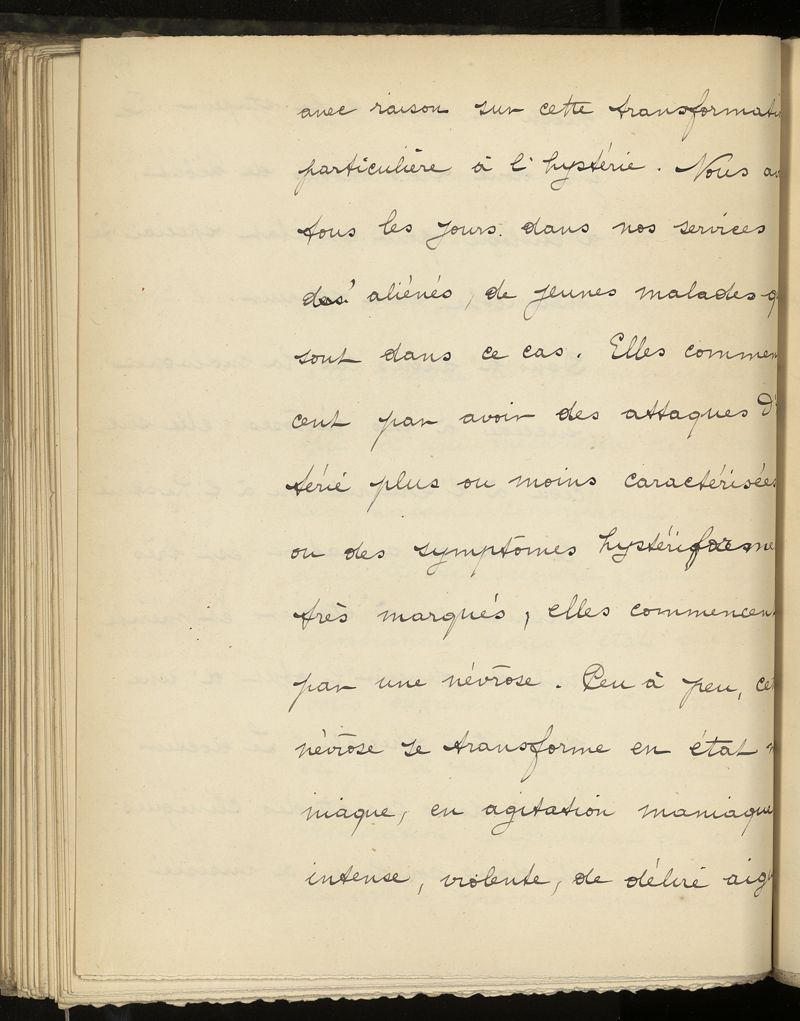 avec raison sur cette transformati
particulière à l'hystérie. Nous av
tous les jours dans nos services
des aliénés, de jeunes malades q
sont dans ce cas. Elles commen
cent par avoir des attaques d'
térie plus ou moins caractérisées
ou des symptômes hystériformes
très marqués, elles commencent
par une névrose. Peu à peu, cet
névrose se transforme en état m
niaque, en agitation maniaque
intense, violente, de délire aigu